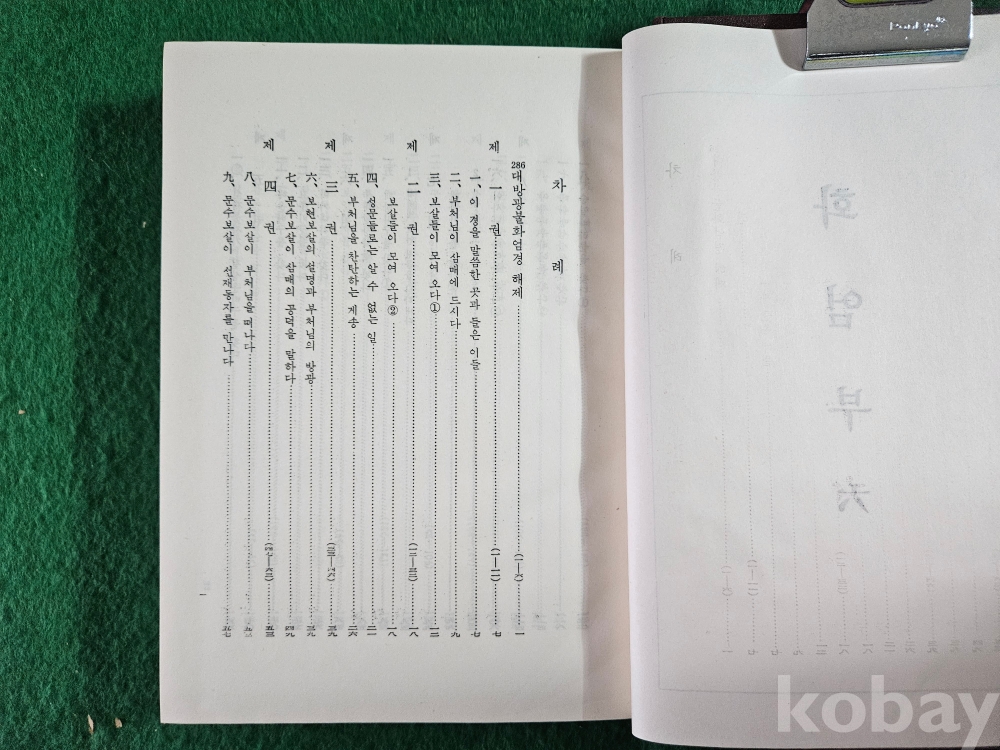 차 례
286 대방광불화엄경 해제 (一—六) 一
제 一 권 (一—一二) 七
一、이 경을 말씀한 곳과 들은 이들 七
二、부처님이 삼매에 드시다 九
三、보살들이 모여 오다① 一三
제 二 권 一八
보살들이 모여 오다② 一八
四、성문들로는 알 수 없는 일 二一
五、부처님을 찬탄하는 게송 二六
제 三 권 三九
六、보현보살의 설명과 부처님의 방광 三九
七、문수보살이 삼매의 공덕을 말하다 四九
제 四 권 五三
八、문수보살이 부처님을 떠나다 五三
九、문수보살이 선재동자를 만나다 五七
一
화엄부
kobay